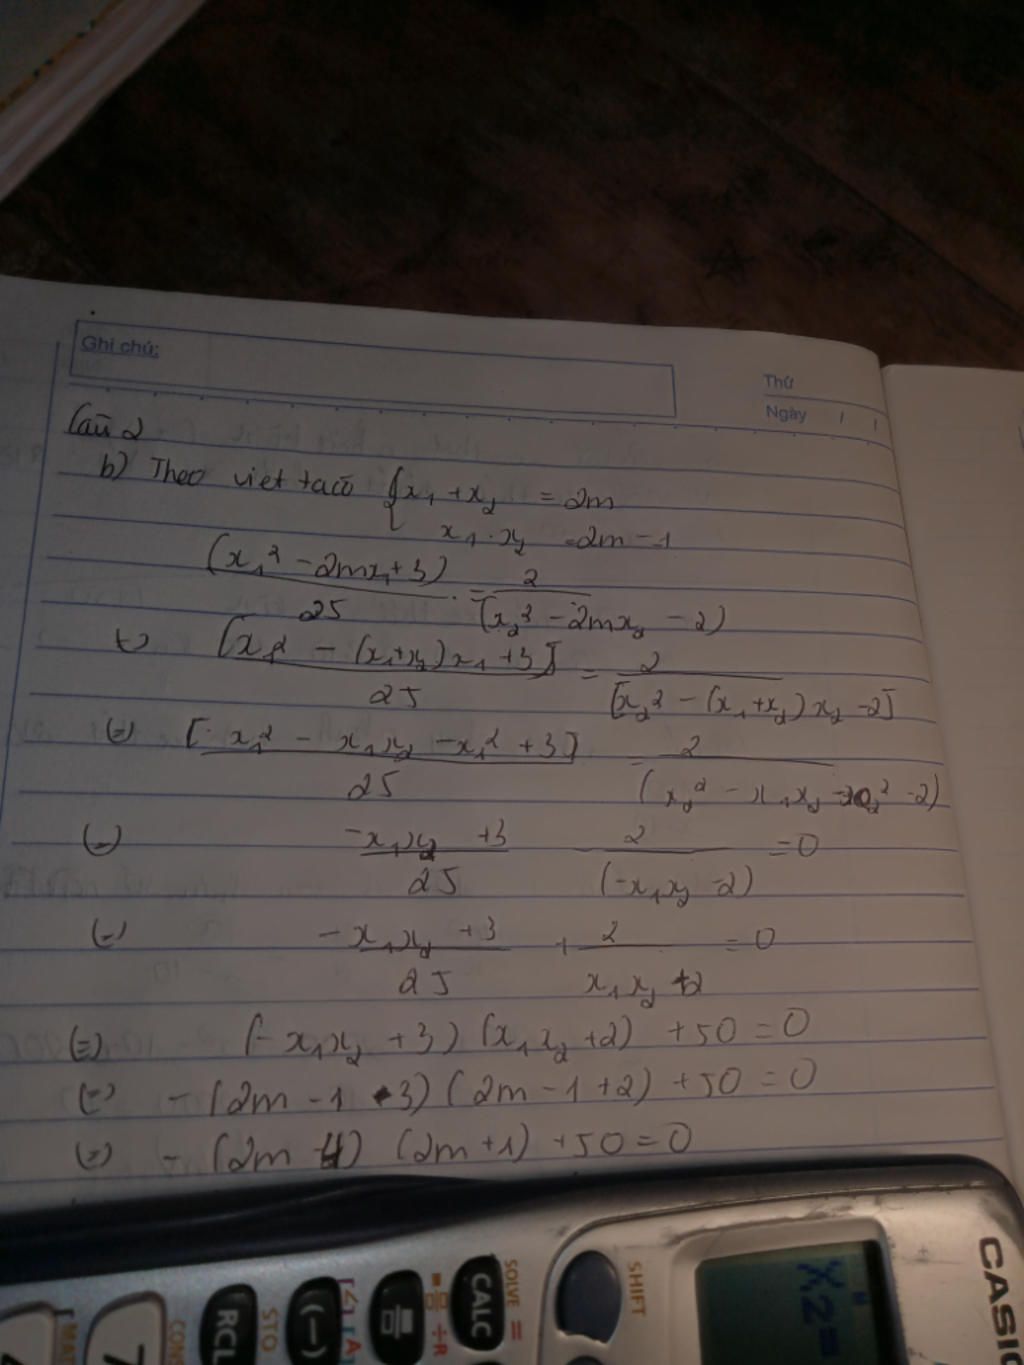 Ghi chú:
Thứ
Ngày / /
Câu 2
b) Theo viet ta có { x₁ + x₂ = 2m
x₁ . x₂ = 2m - 1
(x₁² - 2mx₁ + 3) / 25 = 2 / (x₂² - 2mx₂ - 2)
(=) [x₁² - (x₁+x₂)x₁ + 3] / 25 = 2 / [x₂² - (x₁+x₂)x₂ - 2]
(=) [x₁² - x₁x₂ - x₁² + 3] / 25 = 2 / (x₂² - x₁x₂ - x₂² - 2)
(=) (-x₁x₂ + 3) / 25 - 2 / (-x₁x₂ - 2) = 0
(=) (-x₁x₂ + 3) / 25 + 2 / (x₁x₂ + 2) = 0
(=) (-x₁x₂ + 3) (x₁x₂ + 2) + 50 = 0
(=) - (2m - 1 - 3) (2m - 1 + 2) + 50 = 0
(=) - (2m - 4) (2m + 1) + 50 = 0
CASIO
SHIFT
SOLVE =
CALC
÷R
(−)
STO
RCL
CONS
7
MAT
X2=